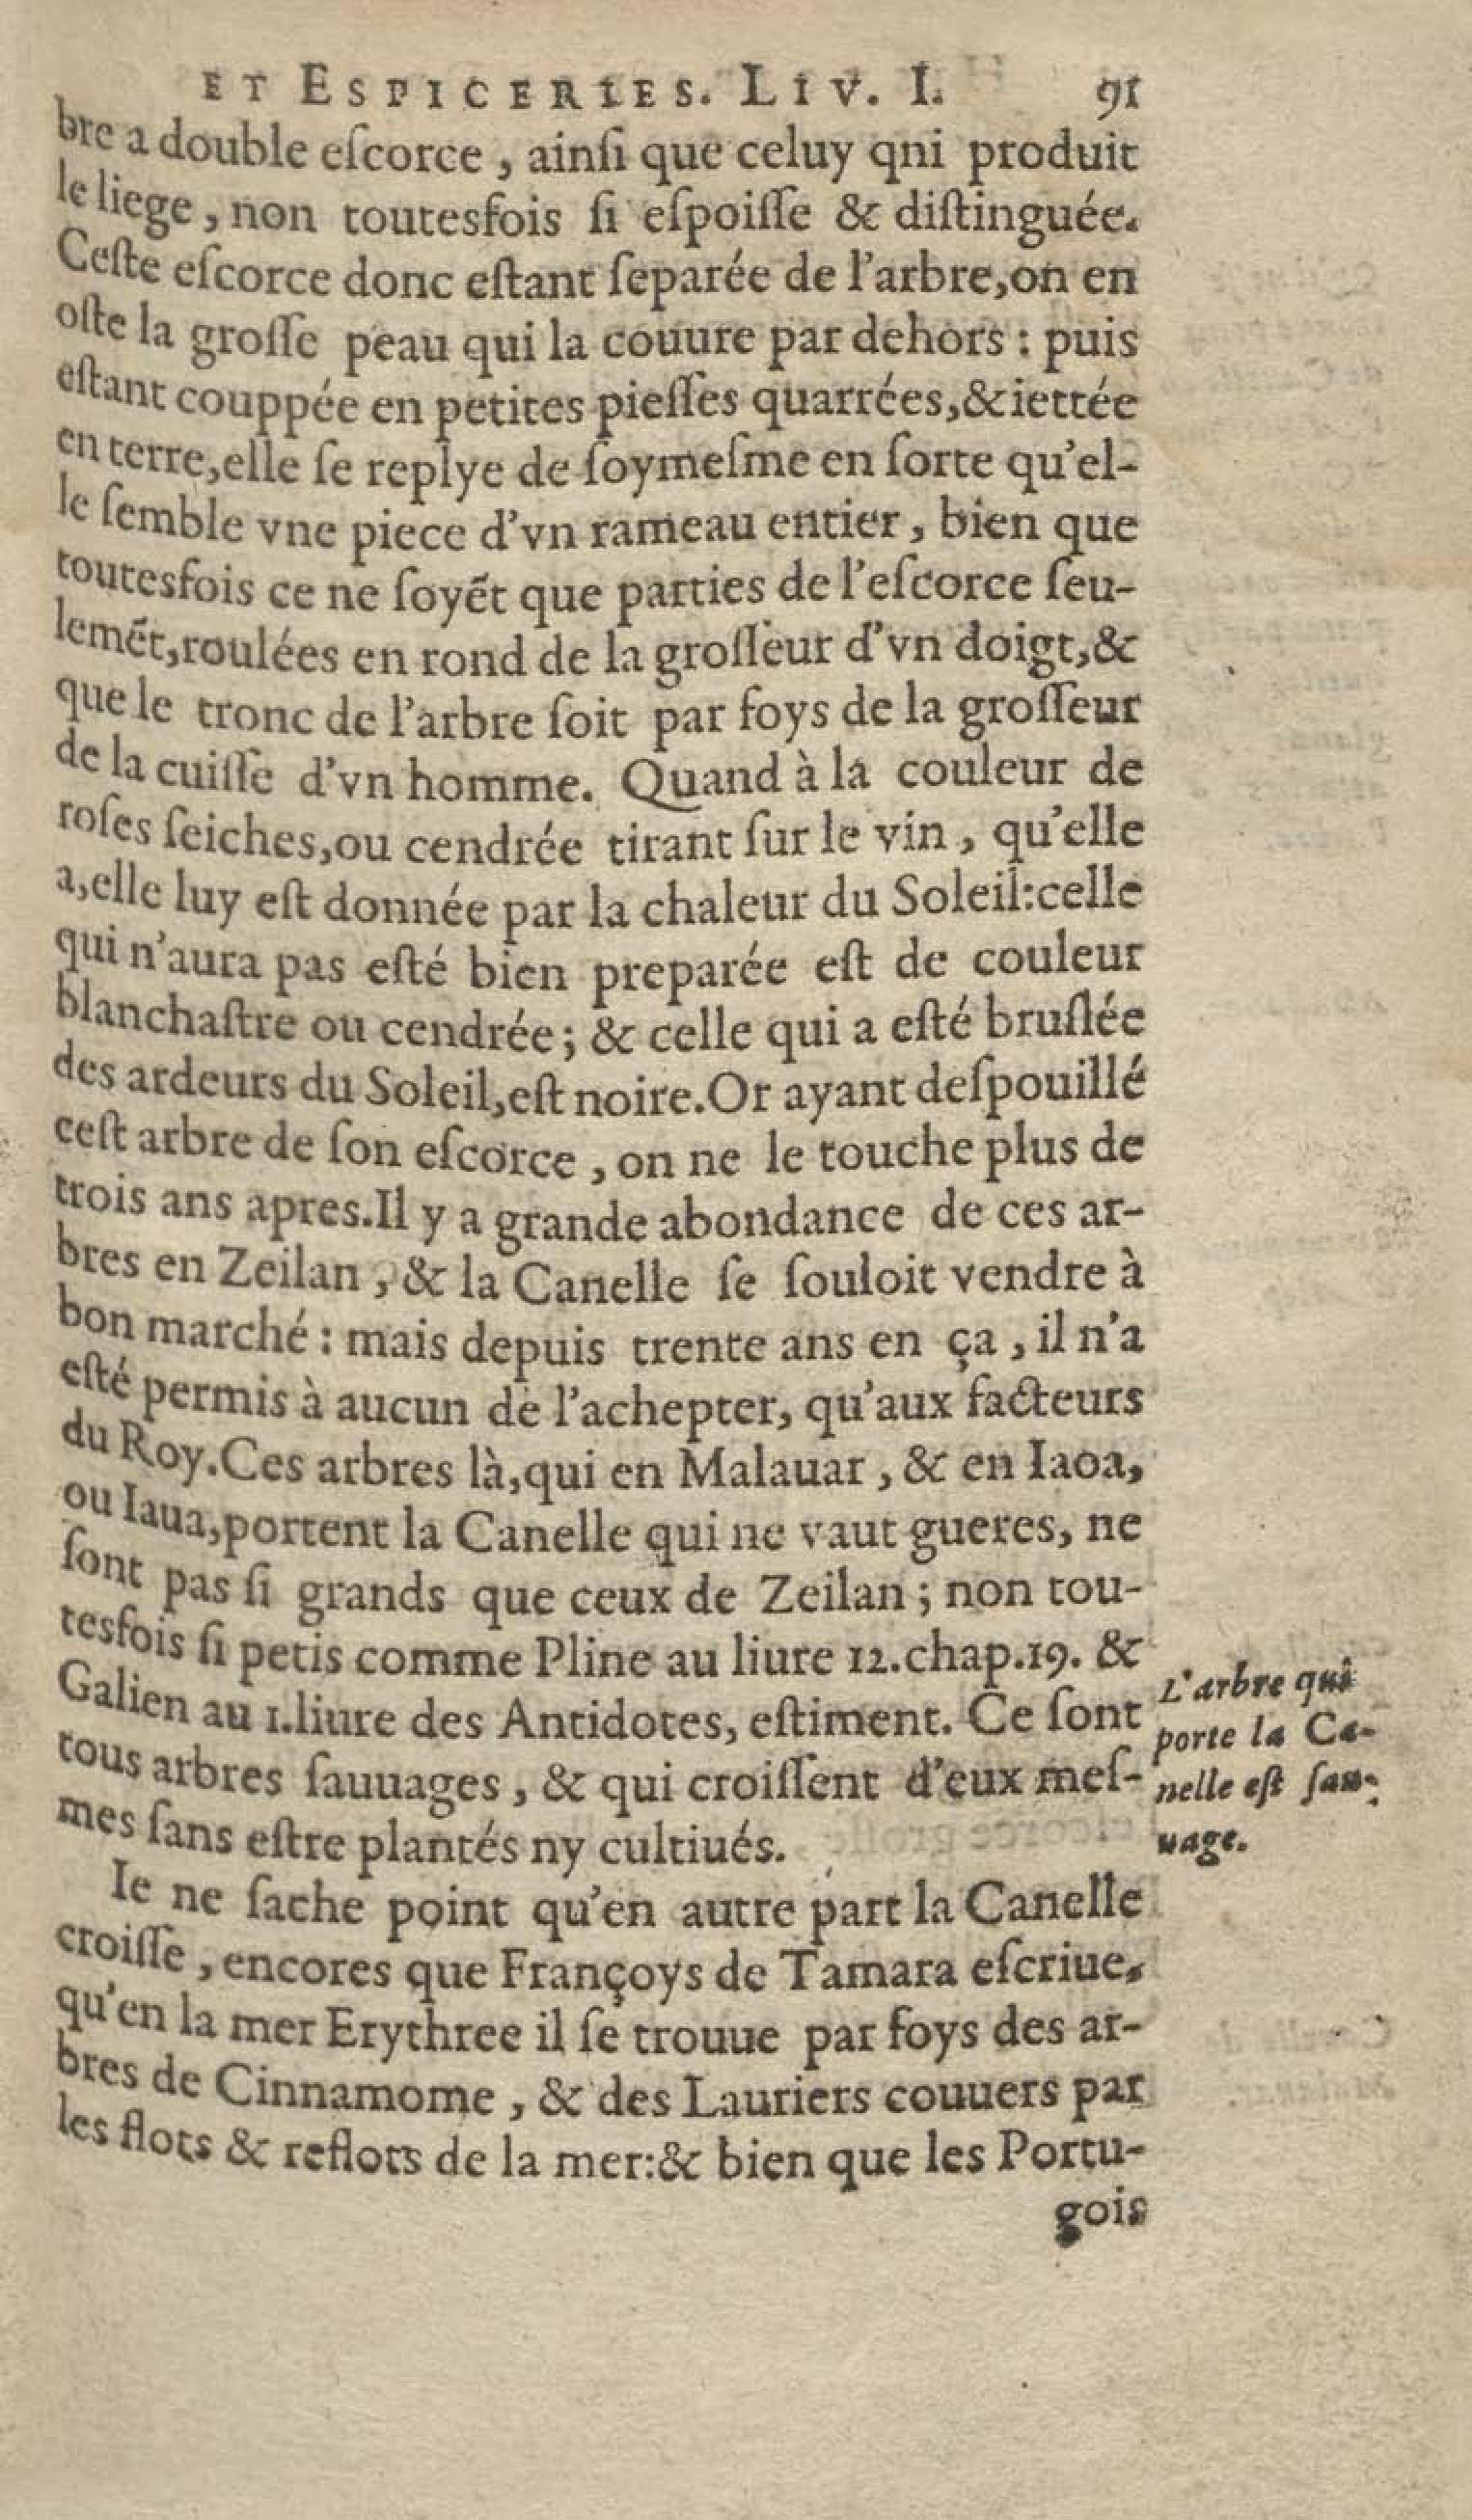 ET ESPICERIES. LIV. I. 91
bre a double eſcorce, ainſi que celuy qni produit
le liege, non toutesfois ſi eſpoiſſe & diſtinguée.
Ceſte eſcorce donc eſtant ſeparée de l'arbre, on en
oſte la groſſe peau qui la couure par dehors : puis
eſtant couppée en petites pieſſes quarrées, & iettée
en terre, elle ſe replye de ſoymeſme en ſorte qu'el-
le ſemble vne piece d'vn rameau entier, bien que
toutesfois ce ne ſoyẽt que parties de l'eſcorce ſeu-
lemẽt, roulées en rond de la groſſeur d'vn doigt, &
que le tronc de l'arbre ſoit par foys de la groſſeur
de la cuiſſe d'vn homme. Quand à la couleur de
roſes ſeiches, ou cendrée tirant ſur le vin, qu'elle
a, elle luy eſt donnée par la chaleur du Soleil: celle
qui n'aura pas eſté bien preparée eſt de couleur
blanchaſtre ou cendrée; & celle qui a eſté bruſlée
des ardeurs du Soleil, eſt noire. Or ayant deſpouillé
ceſt arbre de ſon eſcorce, on ne le touche plus de
trois ans apres. Il y a grande abondance de ces ar-
bres en Zeilan, & la Canelle ſe ſouloit vendre à
bon marché : mais depuis trente ans en ça, il n'a
eſté permis à aucun de l'achepter, qu'aux facteurs
du Roy. Ces arbres là, qui en Malauar, & en Iaoa,
ou Iaua, portent la Canelle qui ne vaut gueres, ne
ſont pas ſi grands que ceux de Zeilan ; non tou-
tesfois ſi petis comme Pline au liure 12. chap. 19. &
Galien au 1. liure des Antidotes, eſtiment. Ce ſont
tous arbres ſauuages, & qui croiſſent d'eux meſ-
mes ſans eſtre plantés ny cultiués.
L'arbre qui
porte la Ca-
nelle eſt ſau-
uage.
Ie ne ſache point qu'en autre part la Canelle
croiſſe, encores que Françoys de Tamara eſcriue,
qu'en la mer Erythree il ſe trouue par foys des ar-
bres de Cinnamome, & des Lauriers couuers par
les flots & reflots de la mer: & bien que les Portu-
gois